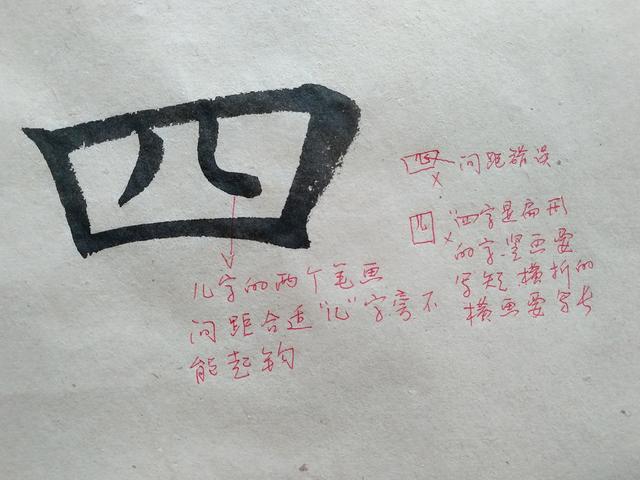 四
四 间距错误。
四 四字是扁形
的字.竖画要
写短.横折的
横画要写长
儿字的两个笔画
间距合适"儿"字旁不
能起钩